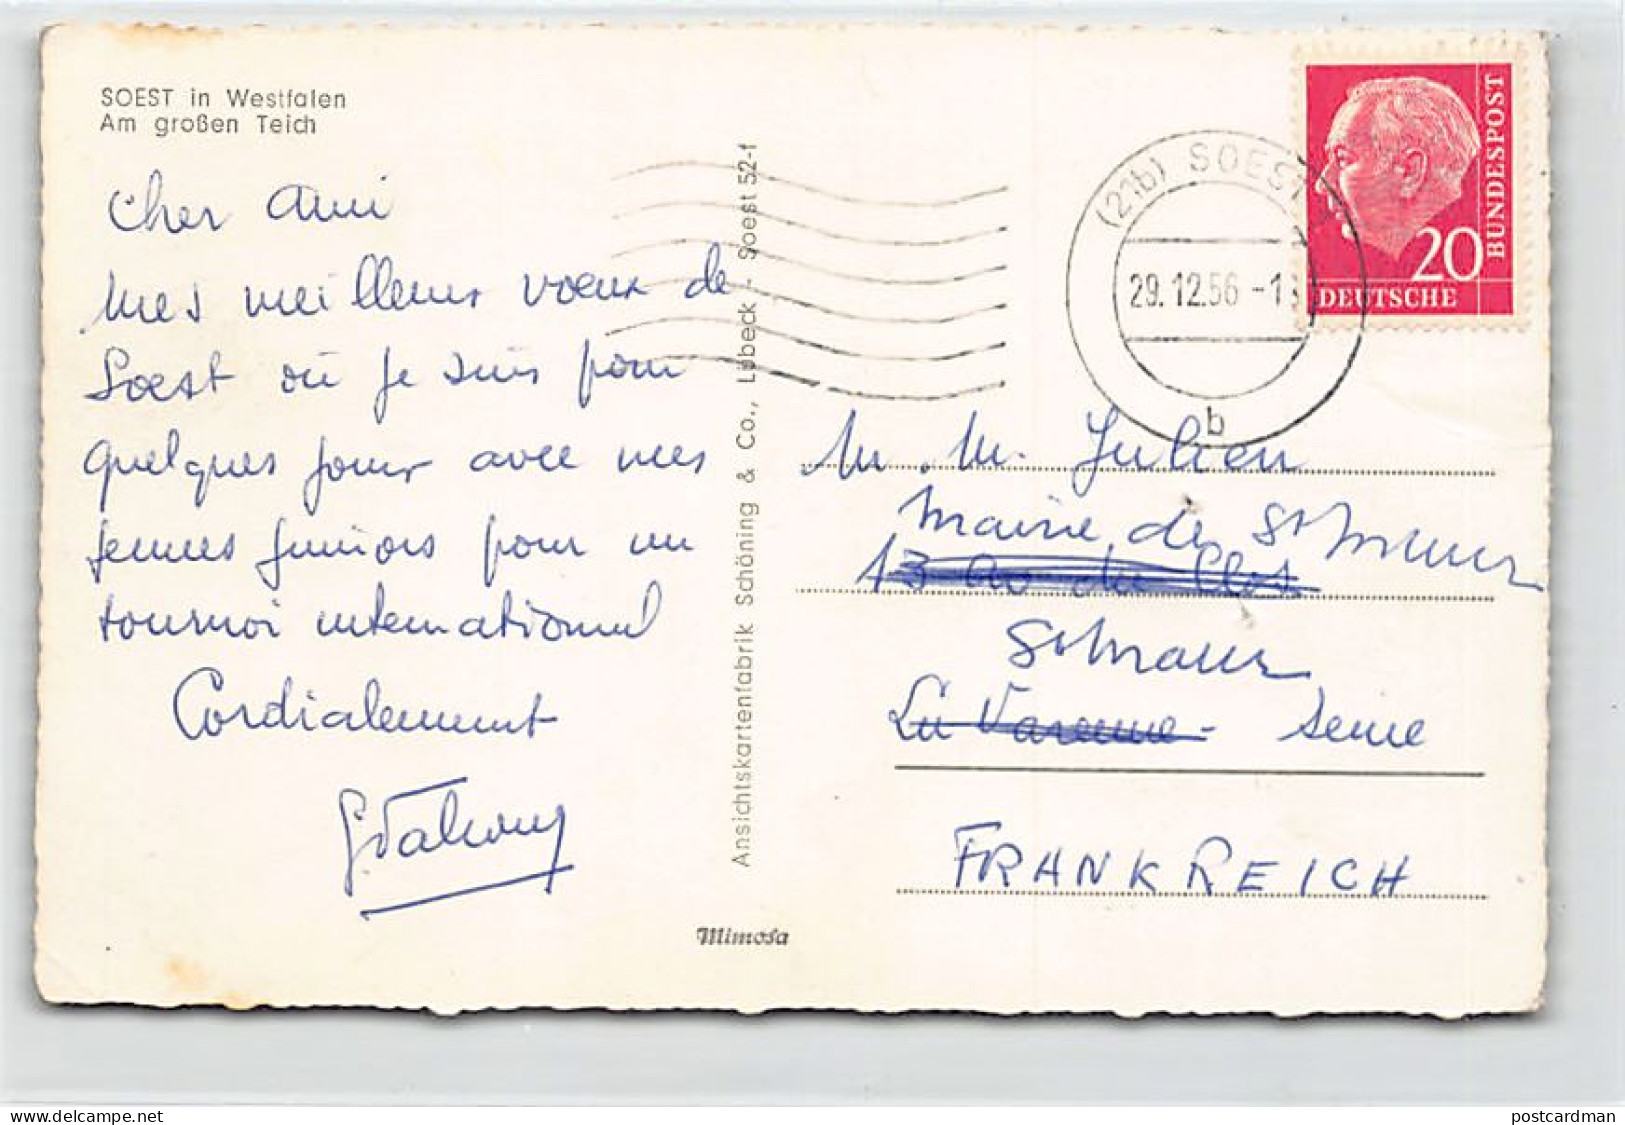 SOEST in Westfalen
Am großen Teich
Cher Ami
Mes meilleurs voeux de
Soest où je suis pour
quelques jours avec mes
jeunes juniors pour un
tournoi international
Cordialement
Ansichtskartenfabrik Schöning & Co., Lübeck - Soest 52-f
Mimosa
(21b) SOEST
29.12.56 -1
b
20
DEUTSCHE
BUNDESPOST
M. M. Julien
Mairie de St Maur
13 av du Clos
St Maur
La Varenne - Seine
FRANKREICH
www.delcampe.net
postcardman